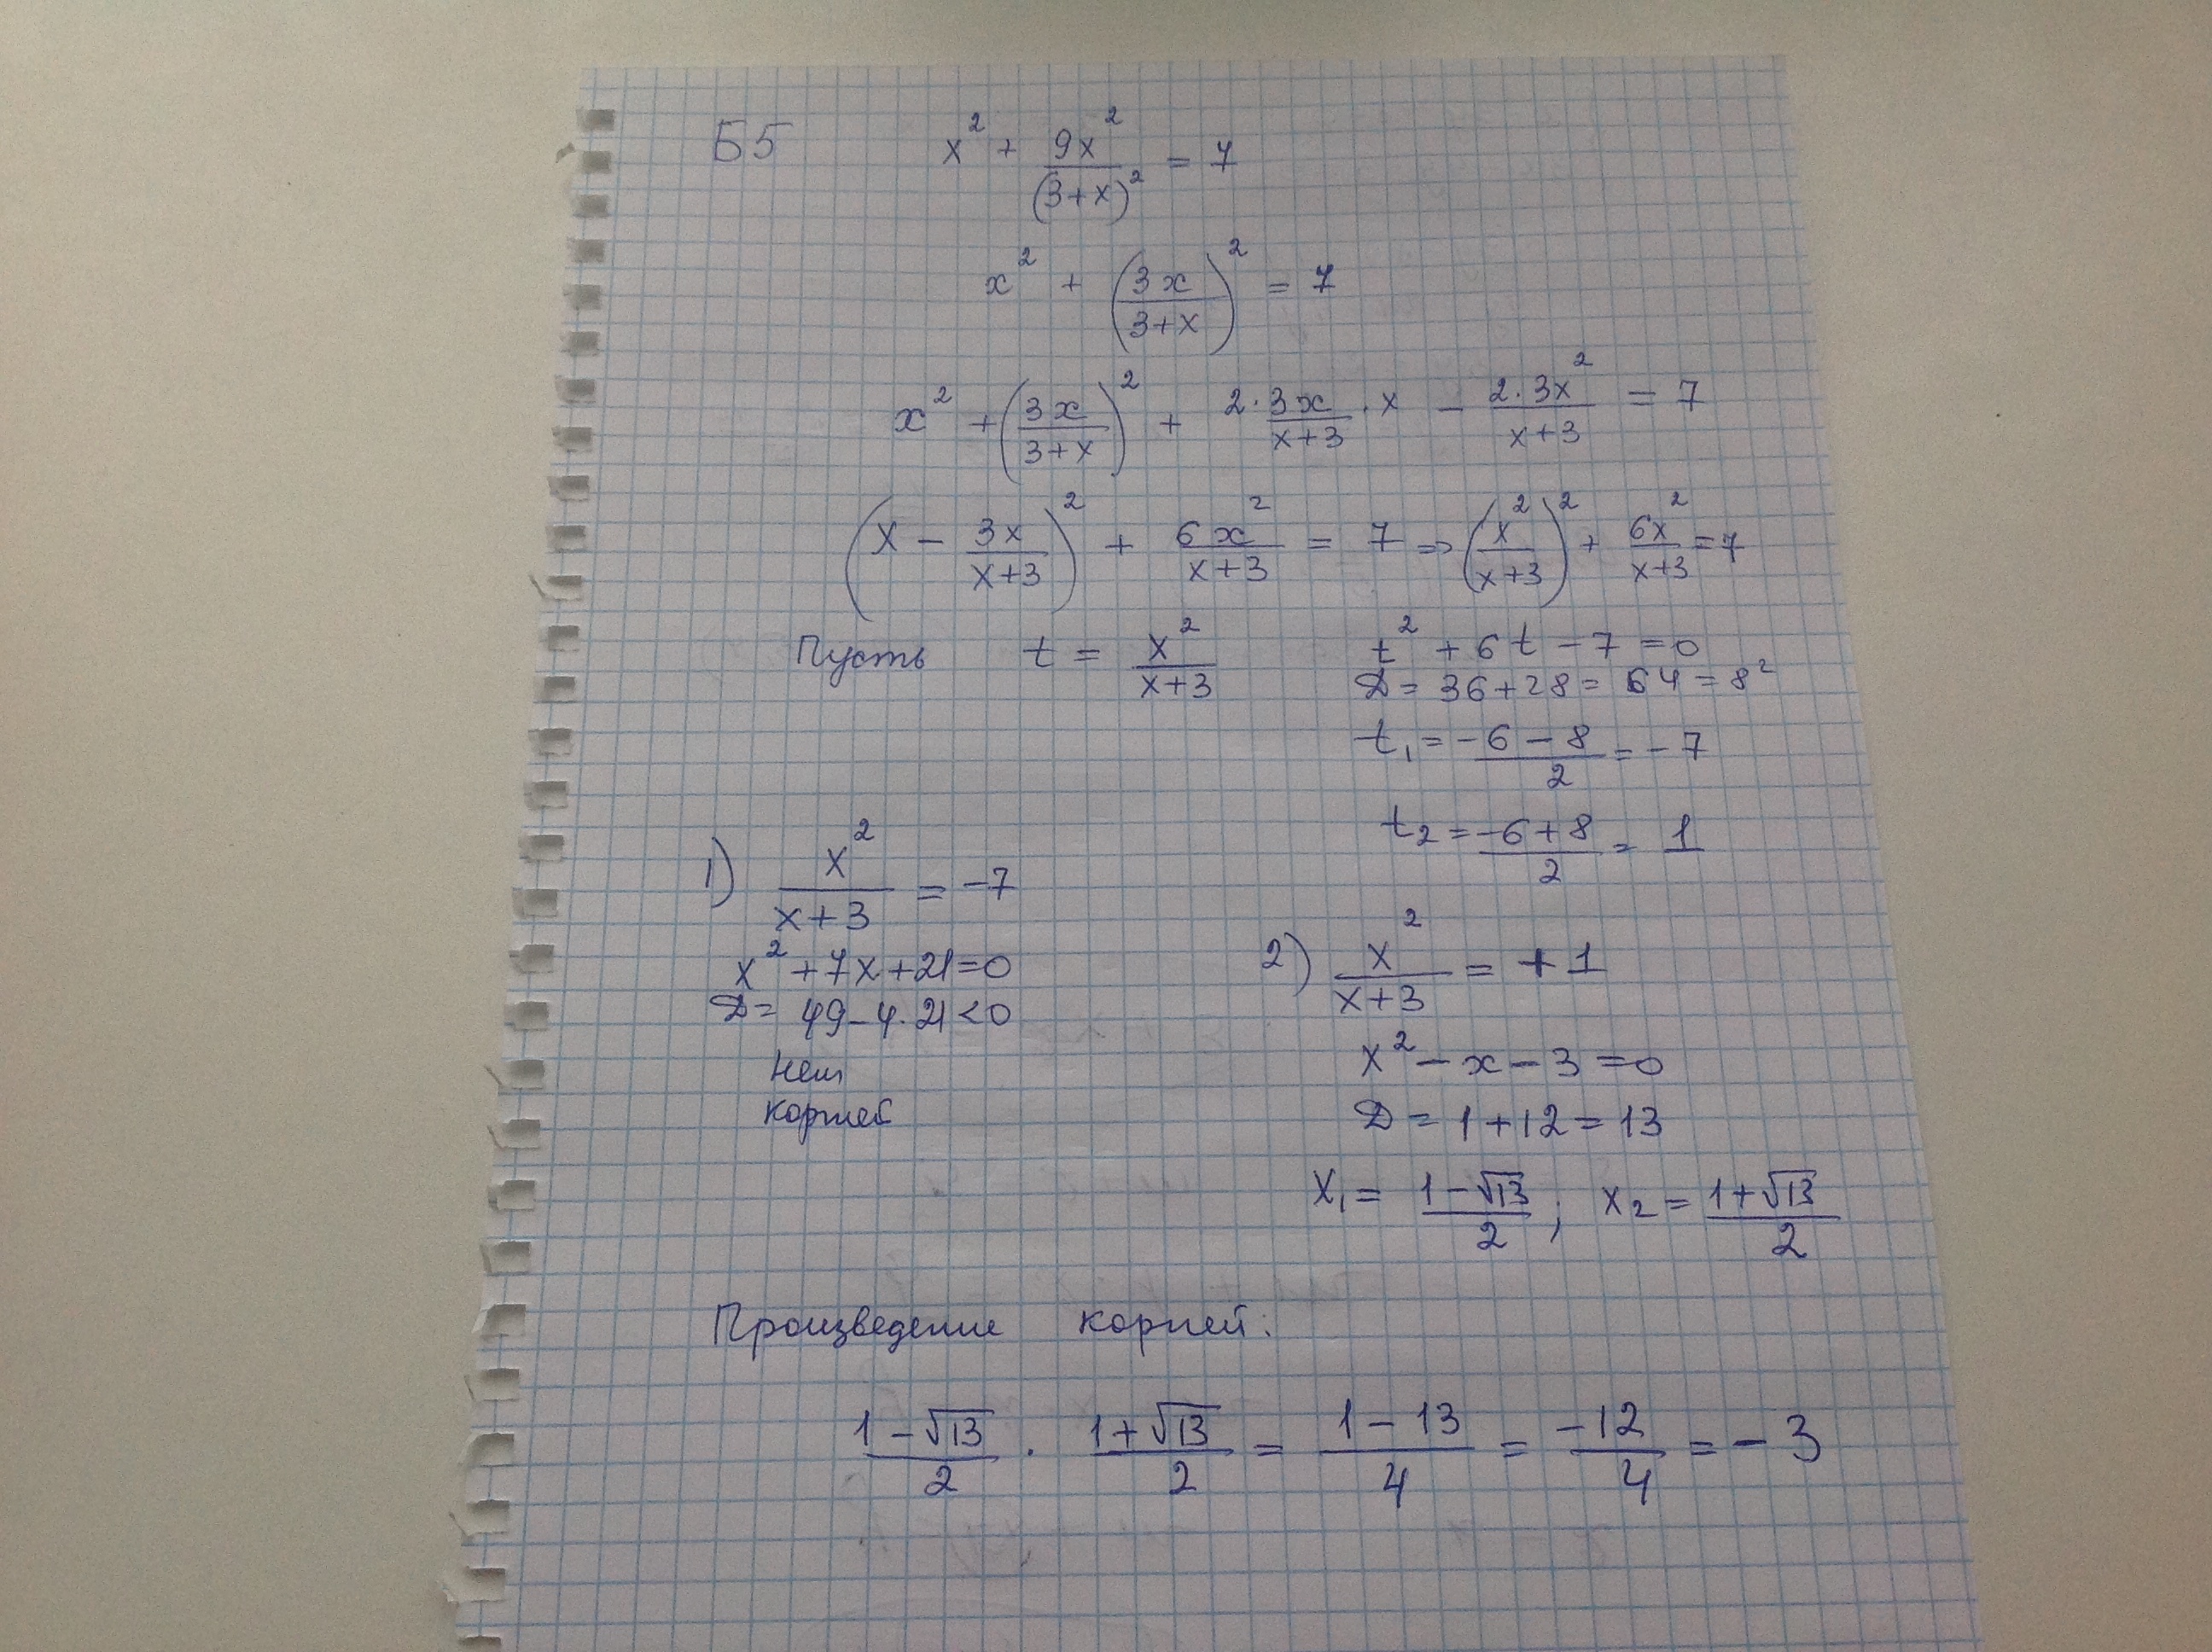 Б5 x² + 9x²/(3+x)² = 7
x² + (3x/(3+x))² = 7
x² + (3x/(3+x))² + 2·3x/(x+3) · x − 2·3x²/(x+3) = 7
(x − 3x/(x+3))² + 6x²/(x+3) = 7 => (x²/(x+3))² + 6x²/(x+3) = 7
Пусть t = x²/(x+3) t² + 6t − 7 = 0
D = 36 + 28 = 64 = 8²
t₁ = (−6 − 8)/2 = −7
t₂ = (−6 + 8)/2 = 1
1) x²/(x+3) = −7
x² + 7x + 21 = 0
D = 49 − 4·21 < 0
Нет
корней
2) x²/(x+3) = +1
x² − x − 3 = 0
D = 1 + 12 = 13
x₁ = (1 − √13)/2 ; x₂ = (1 + √13)/2
Произведение корней:
(1 − √13)/2 · (1 + √13)/2 = (1 − 13)/4 = −12/4 = −3